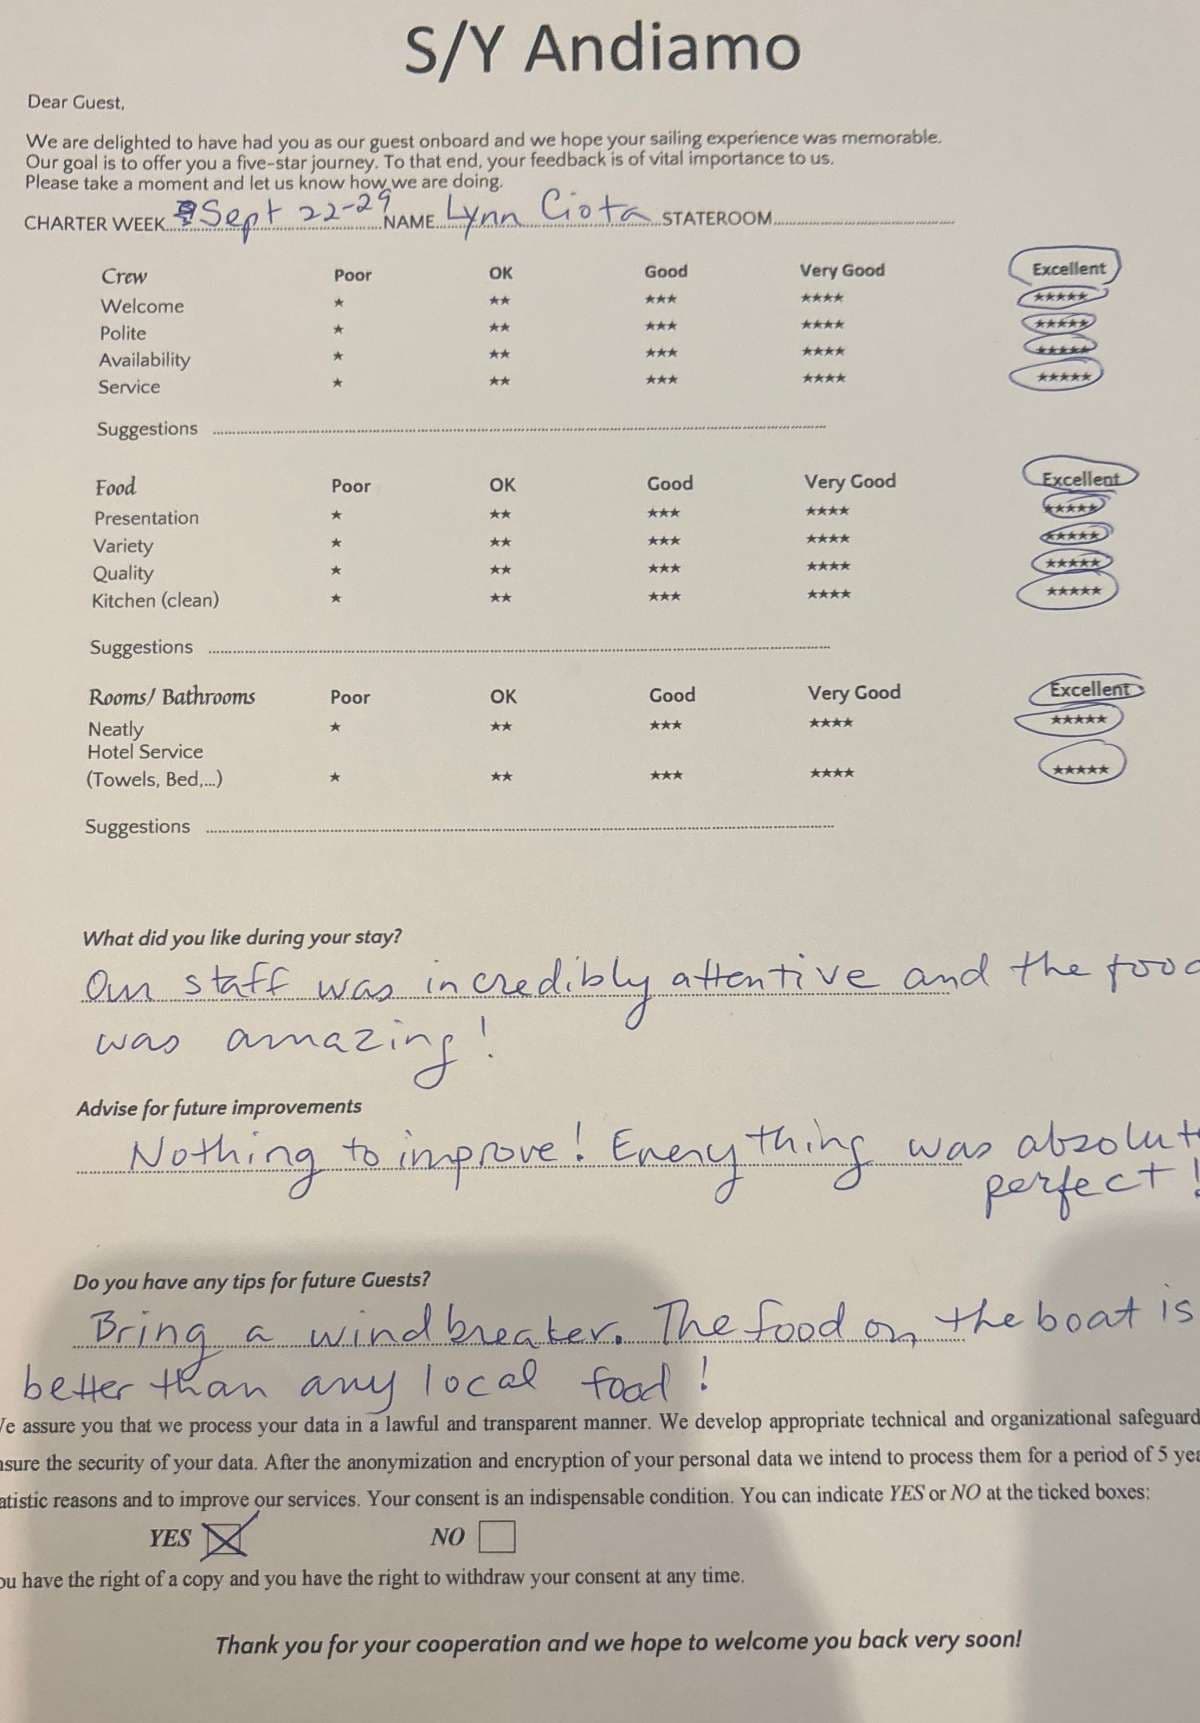 S/Y Andiamo
Dear Guest,
We are delighted to have had you as our guest onboard and we hope your sailing experience was memorable.
Our goal is to offer you a five-star journey. To that end, your feedback is of vital importance to us.
Please take a moment and let us know how we are doing.
CHARTER WEEK Sept 22-29 NAME Lynn Ciota STATEROOM
Crew Poor OK Good Very Good Excellent
Welcome ★ ★★ ★★★ ★★★★ ★★★★★
Polite ★ ★★ ★★★ ★★★★ ★★★★★
Availability ★ ★★ ★★★ ★★★★ ★★★★★
Service ★ ★★ ★★★ ★★★★ ★★★★★
Suggestions
Food Poor OK Good Very Good Excellent
Presentation ★ ★★ ★★★ ★★★★ ★★★★★
Variety ★ ★★ ★★★ ★★★★ ★★★★★
Quality ★ ★★ ★★★ ★★★★ ★★★★★
Kitchen (clean) ★ ★★ ★★★ ★★★★ ★★★★★
Suggestions
Rooms/ Bathrooms Poor OK Good Very Good Excellent
Neatly ★ ★★ ★★★ ★★★★ ★★★★★
Hotel Service
(Towels, Bed,...) ★ ★★ ★★★ ★★★★ ★★★★★
Suggestions
What did you like during your stay?
Our staff was incredibly attentive and the food
was amazing!
Advise for future improvements
Nothing to improve! Everything was absolut
perfect!
Do you have any tips for future Guests?
Bring a windbreaker. The food on the boat is
better than any local food!
We assure you that we process your data in a lawful and transparent manner. We develop appropriate technical and organizational safeguard
nsure the security of your data. After the anonymization and encryption of your personal data we intend to process them for a period of 5 yea
atistic reasons and to improve our services. Your consent is an indispensable condition. You can indicate YES or NO at the ticked boxes:
YES NO
ou have the right of a copy and you have the right to withdraw your consent at any time.
Thank you for your cooperation and we hope to welcome you back very soon!